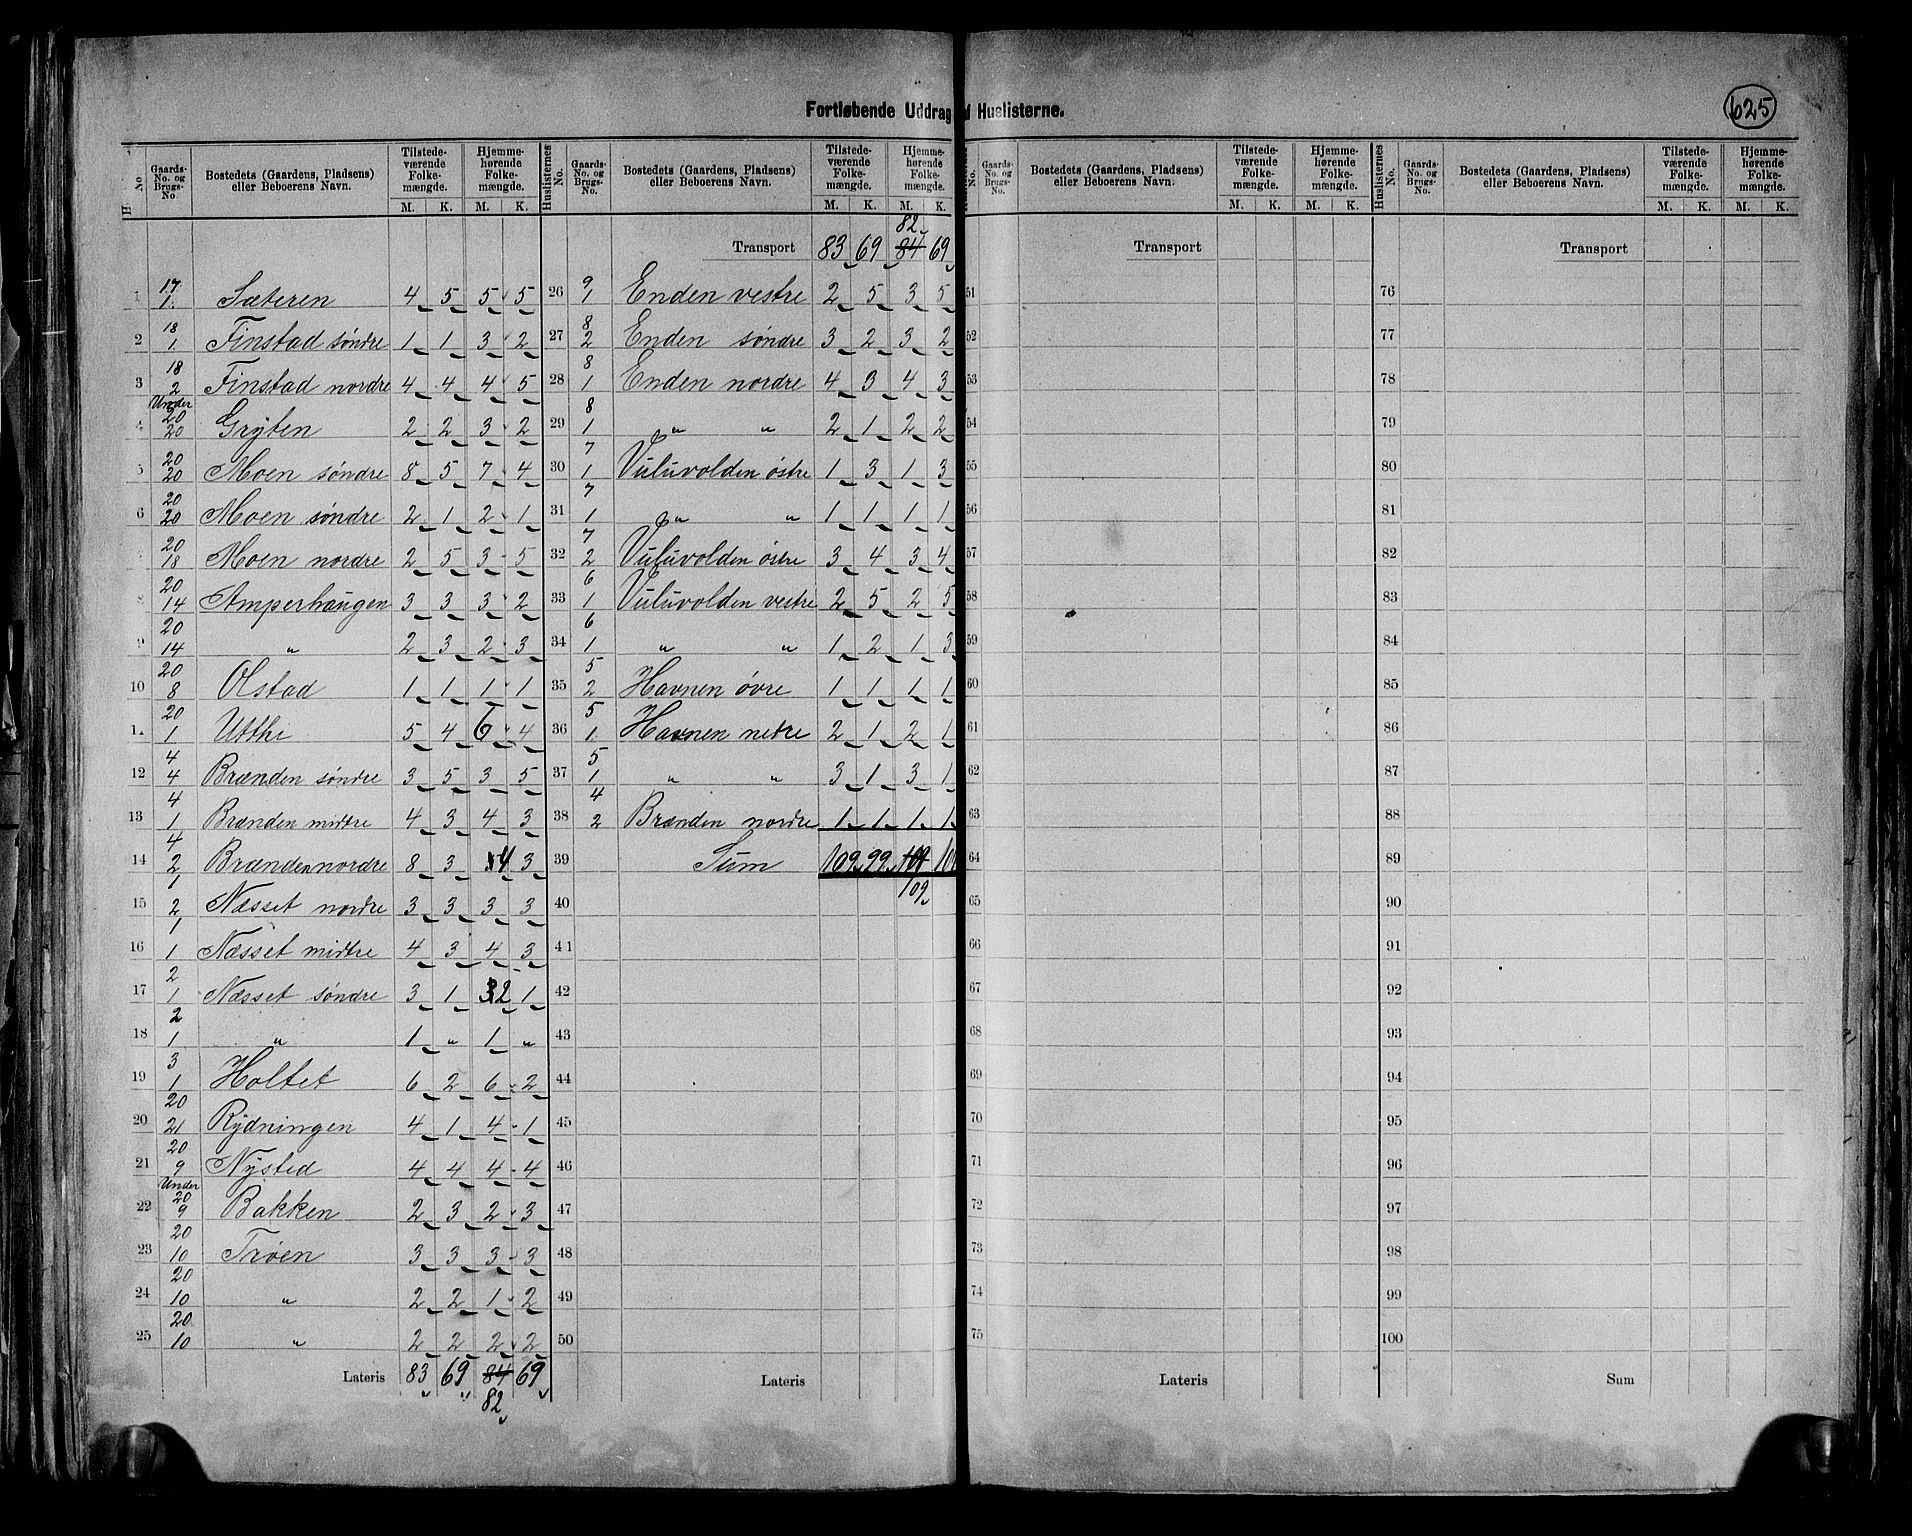 Fortløbende Uddrag af Huslisterne.
625
No Gaards-No. og Brugs-No Bostedets (Gaardens, Pladsens) eller Beboerens Navn. Tilstedeværende Folkemængde. M. K. Hjemmehørende Folkemængde. M. K.
1 17/1. Sæteren 4 5 5 5
2 18/1. Finstad søndre 1 1 3 2
3 18/2 Finstad nordre 4 4 4 5
4 Under 20/20 Gryten 2 2 3 2
5 20/20 Moen søndre 8 5 7 4
6 20/20 Moen søndre 2 1 2 1
20/18 Moen nordre 2 5 3 5
8 20/14 Amperhaugen 3 3 3 2
9 20/14 " 2 3 2 3
10 20/8 Olstad 1 1 1 1
11 20/1 Utthi 5 4 6 4
12 4/4 Brænden søndre 3 5 3 5
13 4/1 Brænden midtre 4 3 4 3
14 4/2 Brænden nordre 8 3 4 3
15 1/2 Næsset nordre 3 3 3 3
16 1/1 Næsset midtre 4 3 4 3
17 2/1 Næsset søndre 3 1 2 1
18 2/1 " 1 " 1 "
19 3/1 Holtet 6 2 6 2
20 20/21 Rydningen 4 1 4 1
21 20/9 Nysted 4 4 4 4
22 Under 20/9 Bakken 2 3 2 3
23 20/10 Trøen 3 3 3 3
24 20/10 " 2 2 1 2
25 20/10 " 2 2 2 2
Lateris 83 69 84 69
82
Huslisternes No. Gaards-No. og Brugs-No. Bostedets (Gaardens, Pladsens) eller Beboerens Navn. Tilstedeværende Folkemængde. M. K. Hjemmehørende Folkemængde. M. K.
82
Transport 83 69 84 69
26 9/1 Enden vestre 2 5 3 5
27 8/2 Enden søndre 3 2 3 2
28 8/1 Enden nordre 4 3 4 3
29 8/1 " " 2 1 2 2
30 7/1 Vuluvolden østre 1 3 1 3
31 7/1 " " 1 1 1 1
32 7/2 Vuluvolden østre 3 4 3 4
33 6/1 Vuluvolden vestre 2 5 2 5
34 6/1 " " 1 2 1 3
35 5/2 Havnen øvre 1 1 1 1
36 5/1. Havnen netre 2 1 2 1
37 5/1 " " 3 1 3 1
38 4/2 Brænden nordre 1 1 1 1
39 Sum 109 99 10
109
40
41
42
43
44
45
46
47
48
49
50
Lateris
No. Gaards-No. og Brugs-No. Bostedets (Gaardens, Pladsens) eller Beboerens Navn. Tilstedeværende Folkemængde. M. K. Hjemmehørende Folkemængde. M. K.
Transport
51
52
53
54
55
56
57
58
59
60
61
62
63
64
65
66
67
68
69
70
71
72
73
74
75
Lateris
Huslisternes No. Gaards-No. og Brugs-No. Bostedets (Gaardens, Pladsens) eller Beboerens Navn. Tilstedeværende Folkemængde. M. K. Hjemmehørende Folkemængde. M. K.
Transport
76
77
78
79
80
81
82
83
84
85
86
87
88
89
90
91
92
93
94
95
96
97
98
99
100
Sum